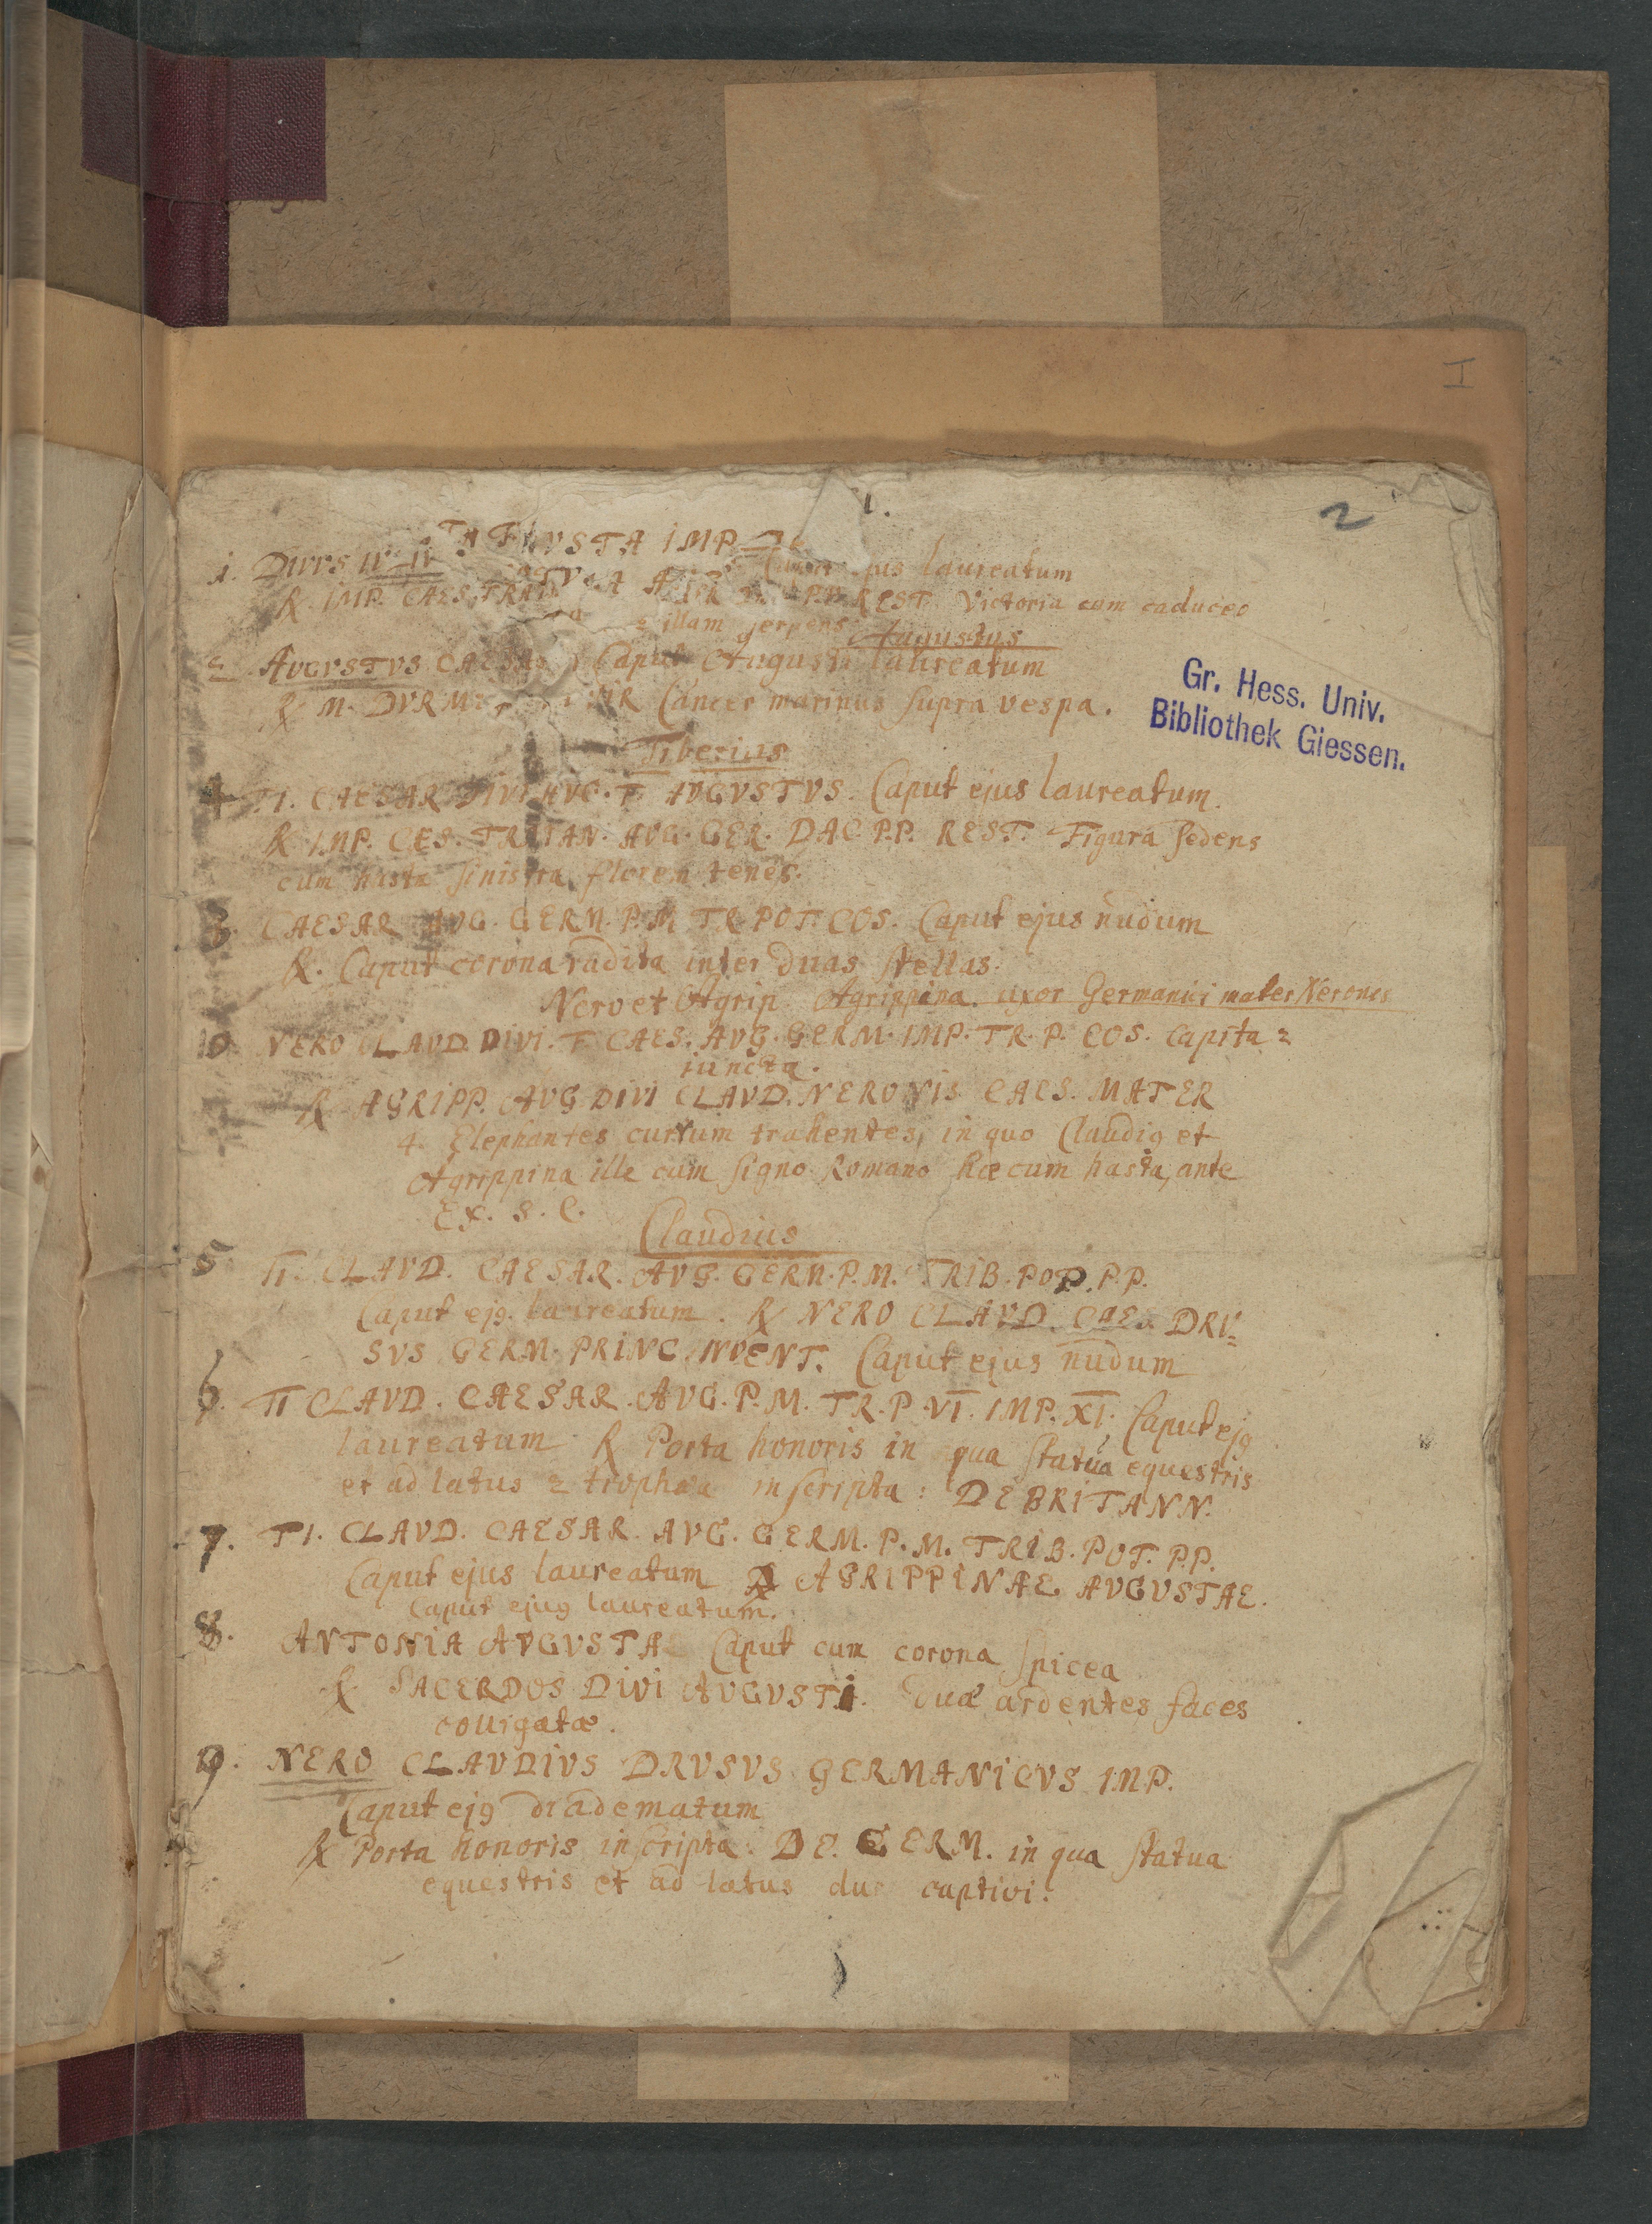 I
1.
2
VSTA IMP
1. DIVVS laureatum
℞. IMP. CAES. TRAI REST. Victoria cum caduceo
illam serpens
Augustus
2 AVGVSTVS CAESAR Caput Augusti laureatum
℞ M. DVRM Cancer marinus supra vespa.
Gr. Hess. Univ.
Bibliothek Giessen.
Tiberius
4 TI. CAESAR DIVI AVG. F. AVGVSTVS. Caput ejus laureatum.
℞ IMP. CES. TRAIAN. AVG. GER. DAC. P.P. REST. Figura sedens
cum hasta sinistra florem tenes.
3. CAESAR AVG. GERM. P. M. TR. POT. COS. Caput ejus nudum
℞. Caput corona radita inter duas stellas.
Nero et Agrip. Agrippina. uxor Germanici mater Nerones
10 NERO CLAVD. DIVI. F. CAES. AVG. GERM. IMP. TR. P. COS. Capita=
iuncta.
℞ AGRIPP. AVG DIVI CLAVD. NERONIS CAES. MATER
4. Elephantes currum trahentes, in quo Claudiꝰ et
Agrippina ille cum signo Romano hæc cum hasta, ante
EX. S. C.
Claudius
5 TI. CLAVD. CAESAR. AVG. GERM. P. M. TRIB. POP. P.P.
Caput ejꝰ. laureatum. ℞ NERO CLAVD. CAES. DRV=
SVS GERM. PRINC. IVVENT. Caput ejus nudum
6. TI CLAVD. CAESAR. AVG. P. M. TR. P. VI. IMP. XI. Caput ejꝰ
laureatum ℞ Porta honoris in qua statua equestris
et ad latus 2 trophæa inscripta: DE BRITANN.
7. TI. CLAVD. CAESAR. AVG. GERM. P. M. TRIB. POT. P.P.
Caput ejus laureatum ℞ AGRIPPINAE AVGVSTAE.
Caput ejus laureatum.
8. ANTONIA AVGVSTA Caput cum corona spicea
℞ SACERDOS DIVI AVGVSTI. duæ ardentes faces
colligatæ.
9. NERO CLAVDIVS DRVSVS GERMANICVS IMP.
Caput ejꝰ diadematum
℞ Porta honoris inscripta: DE. GERM. in qua statua
equestris et ad latus duo captivi.